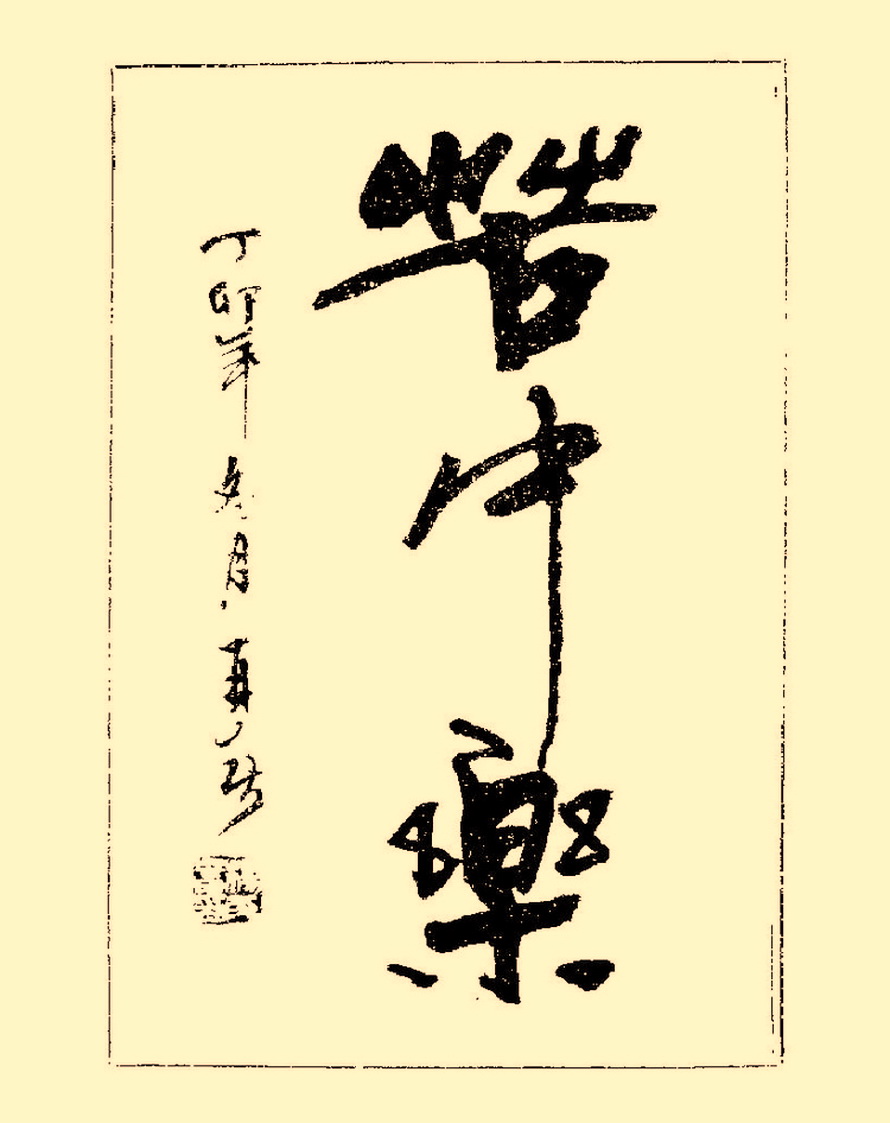 苦中樂
丁卯年冬月